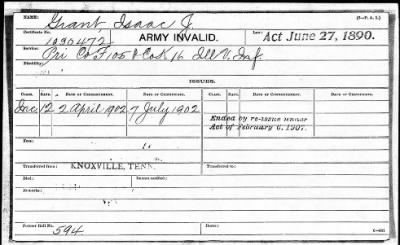 NAME: (3-P. A. I.)
Grant, Isaac J.
Certificate No. Law:
1030472 ARMY INVALID. Act June 27, 1890.
Service:
Pri Co F 105 & Co K 16 Ill V. Inf.
Disability:
ISSUES.
CLASS. RATE. DATE OF COMMENCEMENT. DATE OF CERTIFICATE. CLASS. RATE. DATE OF COMMENCEMENT. DATE OF CERTIFICATE.
Inc 12 2 April 1902 7 July 1902
Ended by re-issue under
Act of February 6, 1907.
Fees:
Transferred from: KNOXVILLE, TENN.
Died: Bureau notified:
Remarks:
Former Roll No.
594